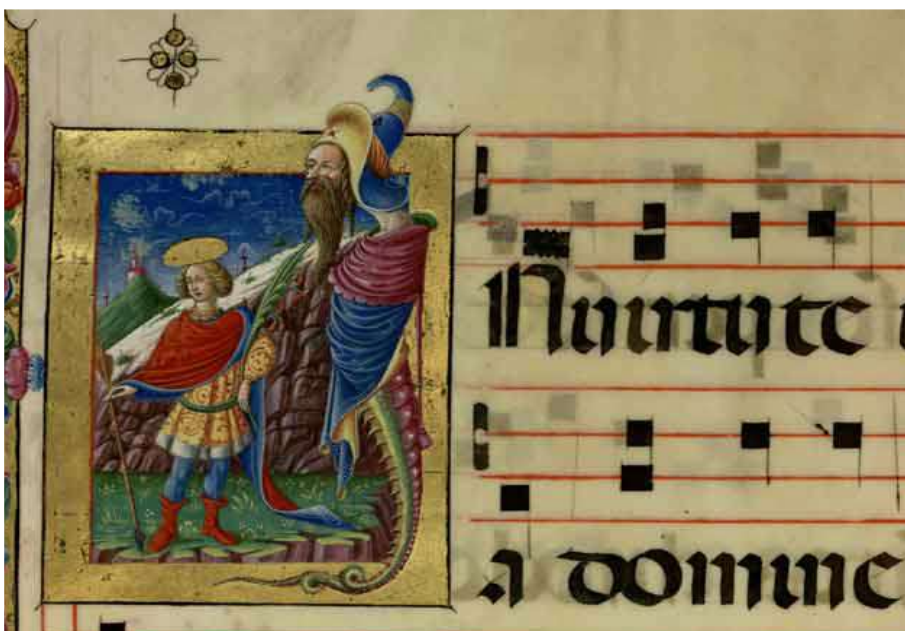 Nuirtute
a domine